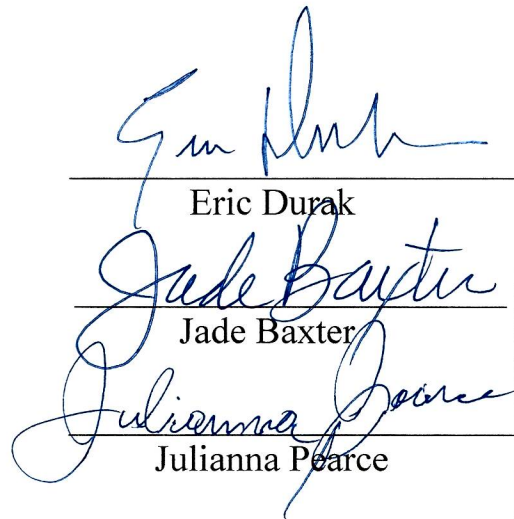 Eric Durak
Jade Baxter
Jade Baxter
Julianna Pearce
Julianna Pearce